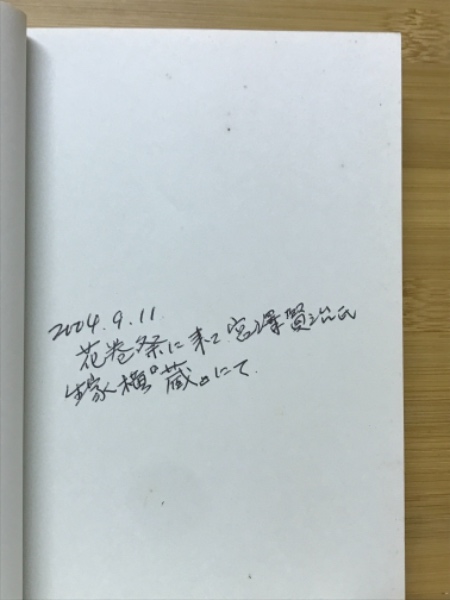 2004.9.11
花巻祭に来て宮澤賢治氏
生家横『蔵』にて.